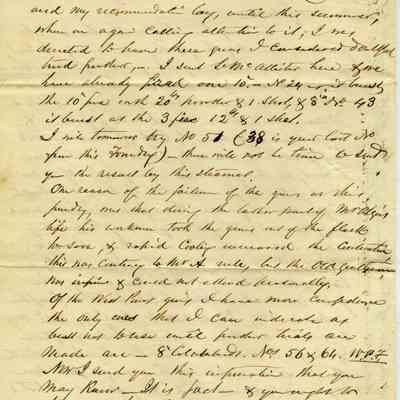 and my recommendation lay, until this summer,
when on again calling attention to it, I was
directed to have these guns I considered doubtful
tried further. I sent Lt McAllister here & we
have already fired one 10in No 24 it burst
the 10th fire with 20lb powder & 1 Shot, & 8in No 43
it burst at the 3 fire 12lb & 1 Shot.
I will tomorrow try No 51 (38 is your last No
from this Foundry) – there will not be time to send
you the result by this steamer.
One reason of the failure of the guns at this
foundry, was that during the latter part of Mr
life his workmen took the guns out of the flask
too soon & rapid Cooling increased the Contraction
this was Contrary to Mr A rule, but the Old gentleman
was infirm & could not attend personally.
Of the West Point guns I have more Confidence
the only ones that I can indicate as
well not to use until further trials are
made are – 8in Columbiads. Nos 56 & 64. W.P.F
Now I send you this information that you
may know – It is fact – & you ought to